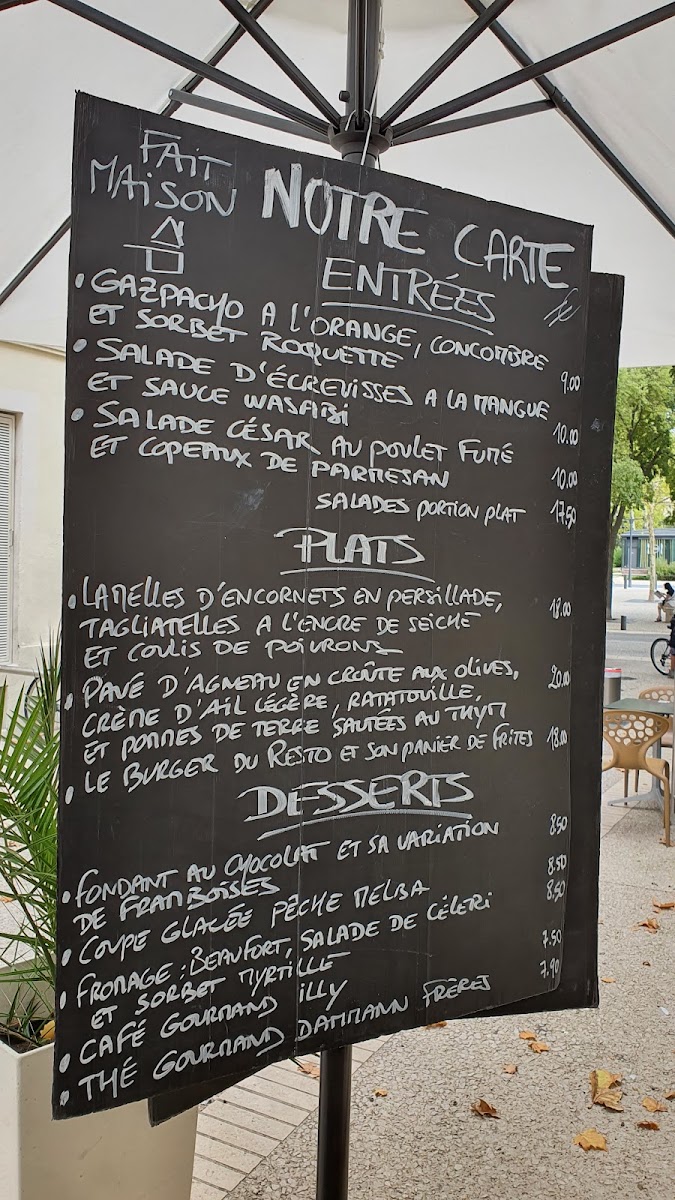 FAIT MAISON
NOTRE CARTE
ENTRÉES
• GAZPACHO A L'ORANGE, CONCOMBRE
ET SORBET ROQUETTE 9.00
• SALADE D'ÉCREVISSES A LA MANGUE
ET SAUCE WASABI 10.00
• SALADE CÉSAR AU POULET FUMÉ
ET COPEAUX DE PARMESAN 10.00
SALADES PORTION PLAT 17.50
PLATS
• LAMELLES D'ENCORNETS EN PERSILLADE, 18.00
TAGLIATELLES A L'ENCRE DE SEICHE
ET COULIS DE POIVRONS
• PAVÉ D'AGNEAU EN CROÛTE AUX OLIVES, 20.00
CRÈME D'AIL LÉGÈRE, RATATOUILLE,
ET POMMES DE TERRE SAUTÉES AU THYM
• LE BURGER DU RESTO ET SON PANIER DE FRITES 18.00
DESSERTS
• FONDANT AU CHOCOLAT ET SA VARIATION 8.50
DE FRAMBOISES
• COUPE GLACÉE PÊCHE MELBA 8.50
• FROMAGE : BEAUFORT, SALADE DE CÉLERI 8.50
ET SORBET MYRTILLE
• CAFÉ GOURMAND ILLY 7.50
• THÉ GOURMAND DAMMANN FRÈRES 7.90